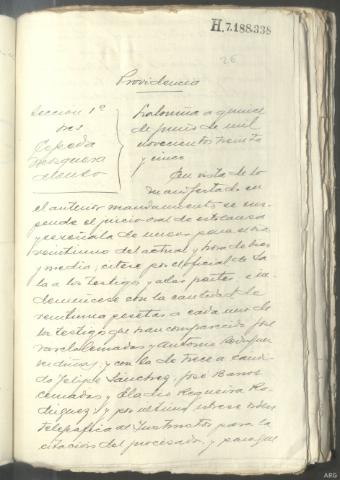 H.7.188.338
26
Providencia
Sección 1ª
Cepeda
Mosquera
La Coruña a quince
de junio de mil
novecientos treinta
y cinco
En vista de lo
manifestado en
el anterior mandamiento se sus-
pende el juicio oral de esta causa
y se señala de nuevo para el dia
veintiuno del actual y hora de diez
y media; citese por el oficial de Sa-
la a los testigos y a las partes e in-
demnicese con la cantidad de
veintiuna pesetas a cada uno de
los testigos que han comparecido José
y Antonio Rodriguez
y con la de trece a
do Felipe Sánchez, José Barros
y Eladio Regueira Ro-
driguez; y por último librese orden
telegráfica al Instructor para la
citación del procesado, y para que
ARG